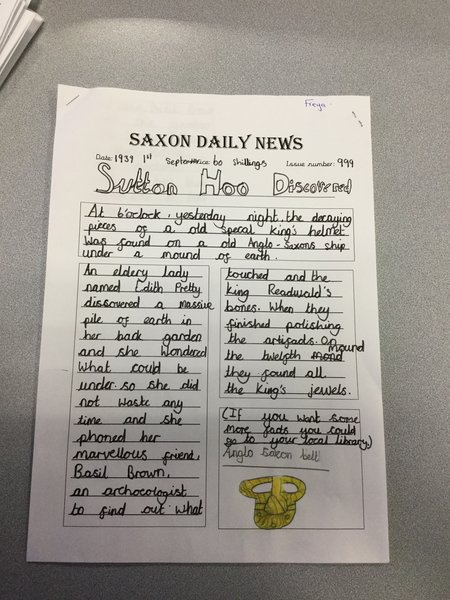 Freya
SAXON DAILY NEWS
Date: 1939 1st September Price: 60 shillings Issue number: 999
Sutton Hoo Discovered
At 6'oclock, yesterday night, the decaying
pieces of a old specal king's helmet
was found on a old Anglo-Saxons ship
under a mound of earth.
An eldery lady
named Edith Pretty
discovered a massive
pile of earth in
her back garden
and she wondered
What could be
under. so she did
not waste any
time and she
phoned her
marvellous friend,
Basil Brown,
an archocologist
to find out what
touched and the
king Readwald's
bones. When they
finished polishing
the artifads. On
the twelfth mound
they found all
the king's jewels.
(If you want some
more facts you could
go to your local library)
Anglo Saxon belt